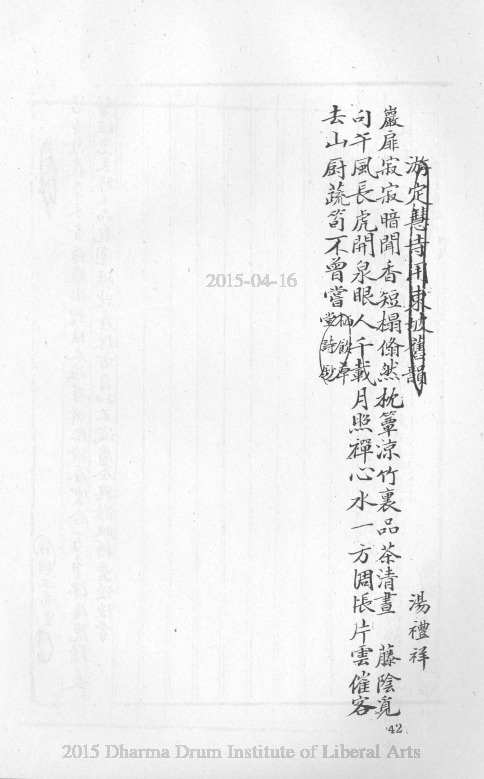 游定慧寺用東坡舊韻 湯禮祥
巖扉寂寂暗聞香短榻翛然枕簟涼竹裏品茶清晝 藤陰覓
句午風長虎開泉眼人千載月照禪心水一方惆悵片雲催客
去山厨蔬筍不曾嘗
栖飲草
堂詩鈔
42
2015-04-16
2015 Dharma Drum Institute of Liberal Arts